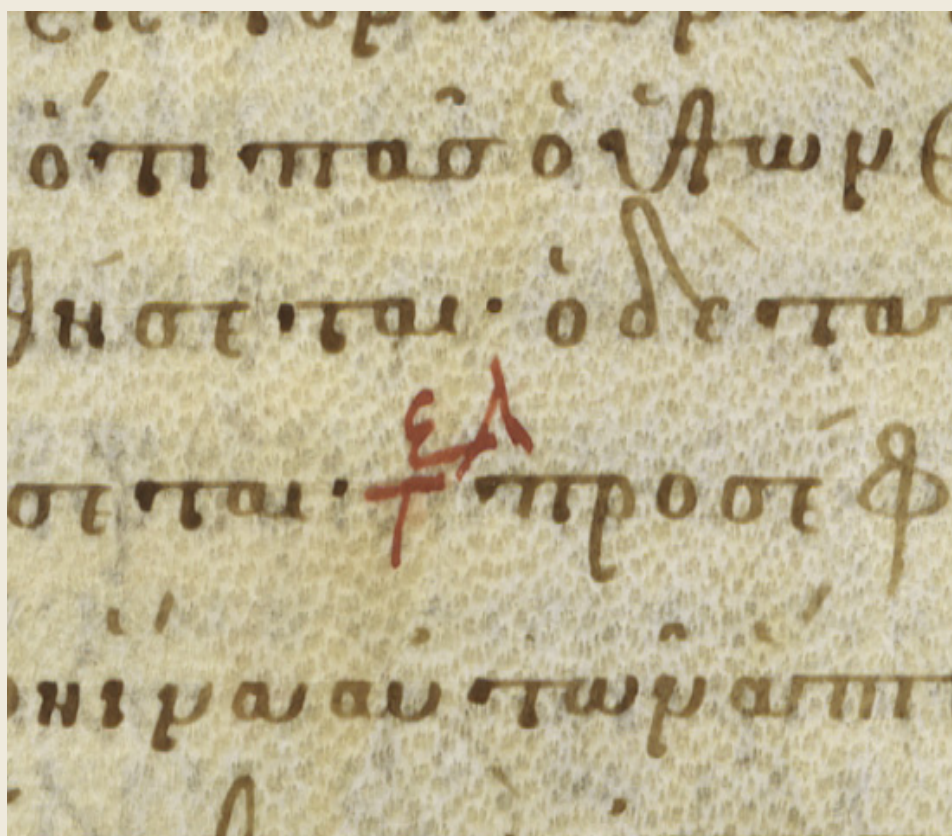 ὅτι πᾶσ ὁ ὑψῶν
θήσεται· ὁ δὲ τα
σεται· τελ προσέφ
η ἵνα αὐτῶν ἅπτ